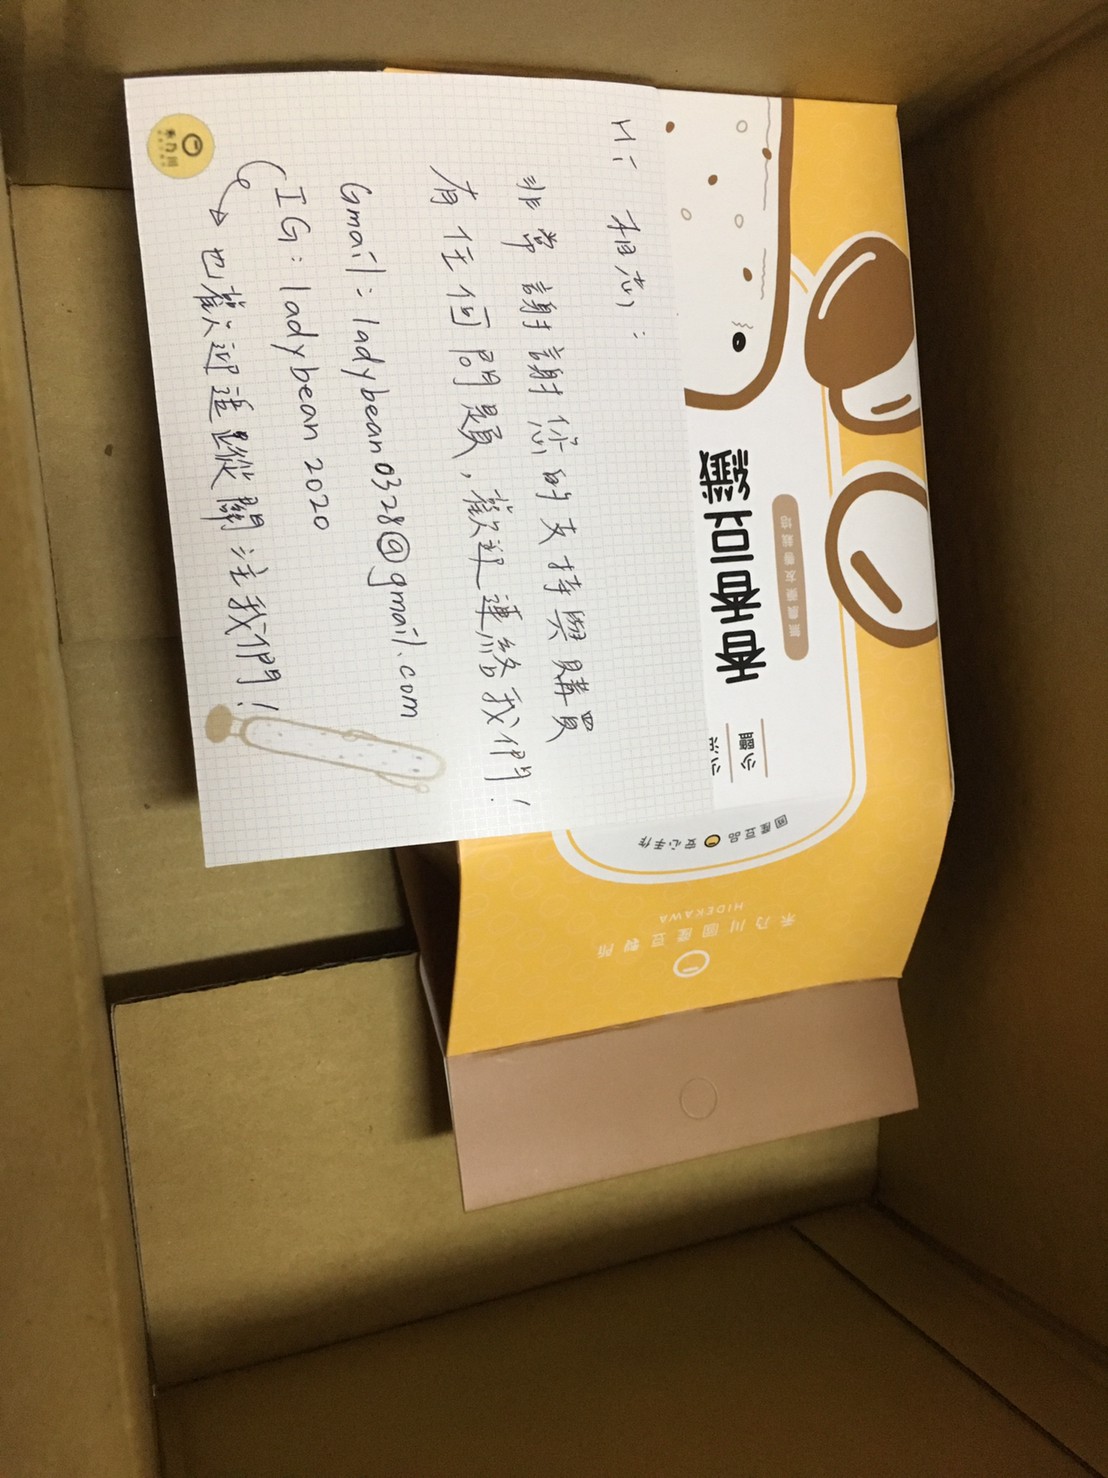 Hi 相志：
非常謝謝您的支持與購買
有任何問題，歡迎連絡我們！
Gmail：ladybean0328@gmail.com
IG：ladybean 2020
也歡迎追蹤關注我們！
禾乃川
無農藥友善栽培
國產豆品 安心手作
禾乃川國產豆製所
HIDEKAWA